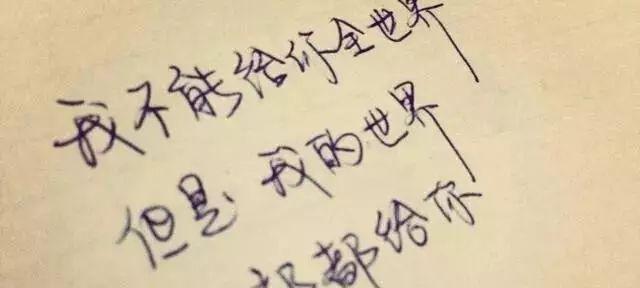 我不能给你全世界
但是我的世界
都给你